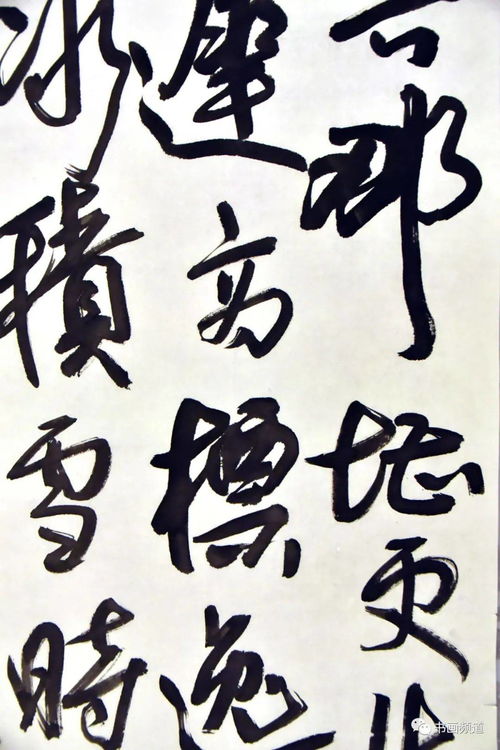 那堪更
遲高標逸
冰積雪時
书画频道